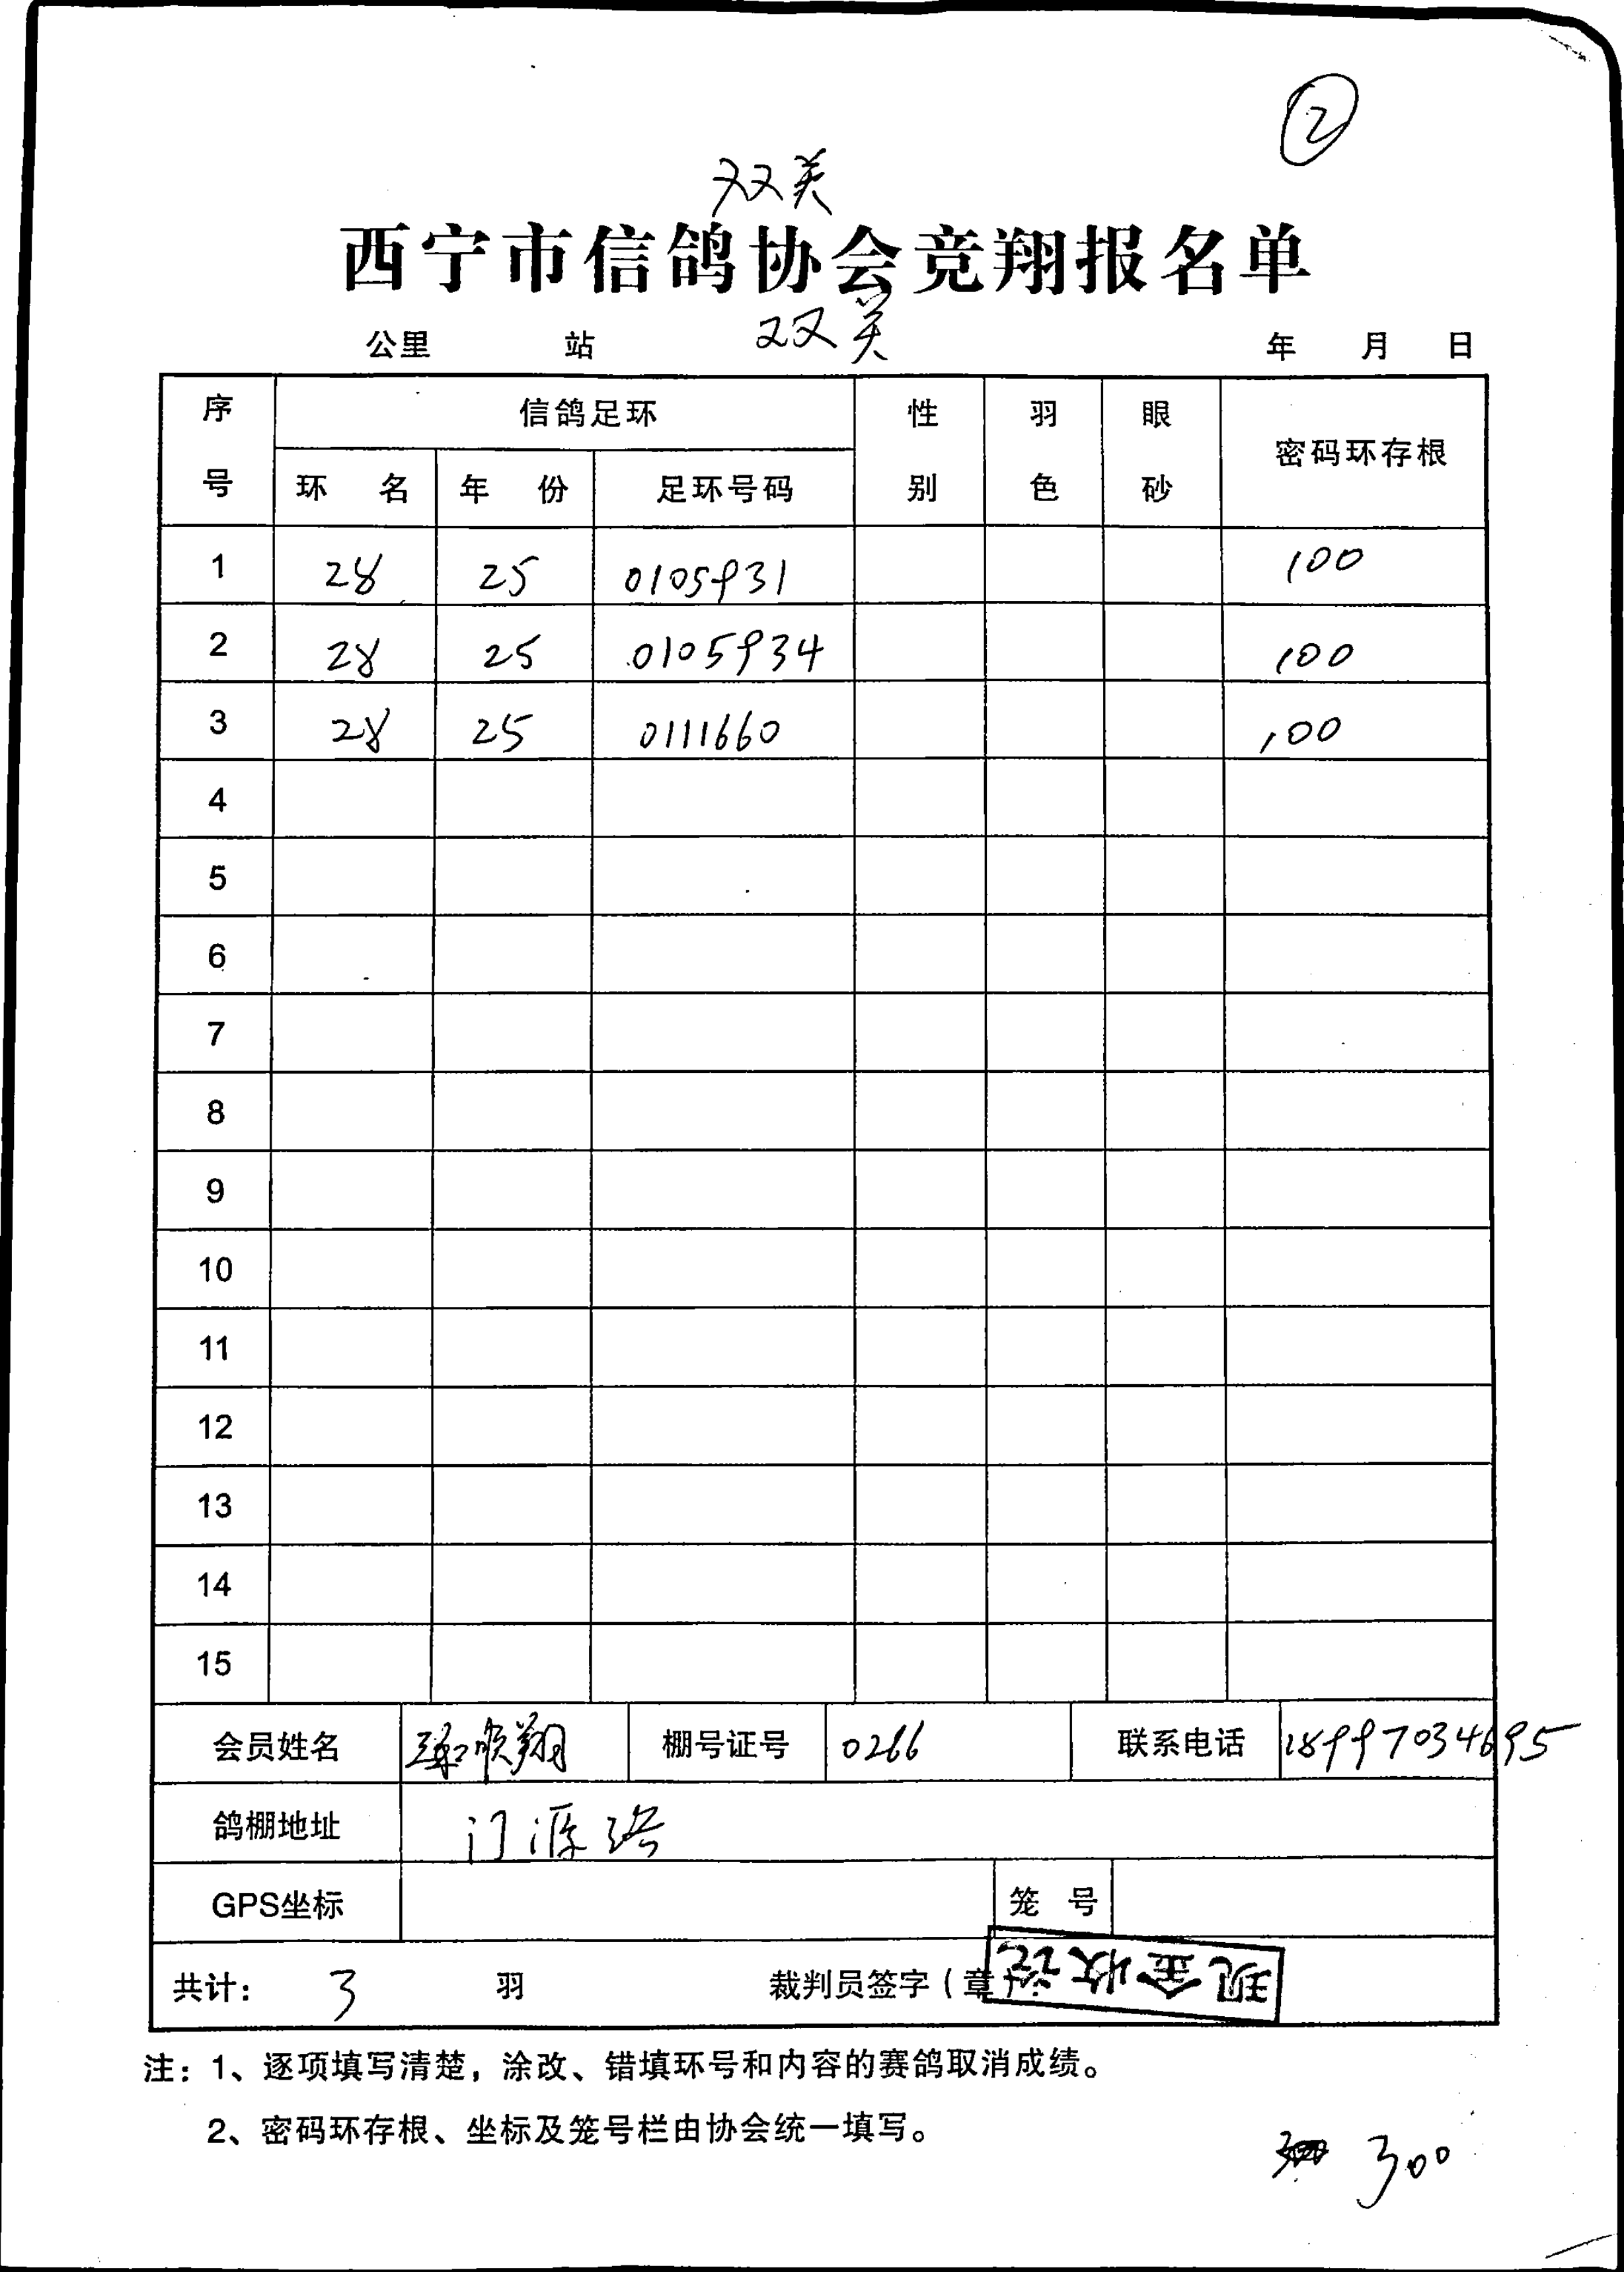 ②
双关
西宁市信鸽协会竞翔报名单
双关
公里 站 年 月 日
序号 信鸽足环 性别 羽色 眼砂 密码环存根
环名 年份 足环号码
1 28 25 0105931 100
2 28 25 0105934 100
3 28 25 0111660 100
4
5
6
7
8
9
10
11
12
13
14
15
会员姓名 顺翔 棚号证号 0266 联系电话 18997034695
鸽棚地址 门源路
GPS坐标 笼号
共计: 3 羽 裁判员签字(章) 现金收讫
注:1、逐项填写清楚,涂改、错填环号和内容的赛鸽取消成绩。
2、密码环存根、坐标及笼号栏由协会统一填写。
300